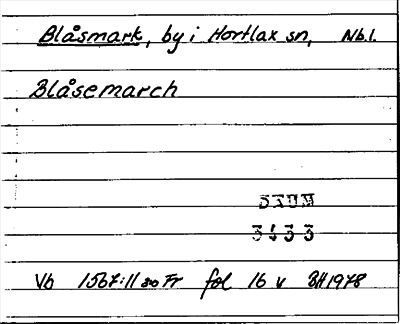 Blåsmark, by i Hortlax sn, Nb.l.
Blåsemarch
3433
Vb 1567:11 Fr fol 16 v BH 1978